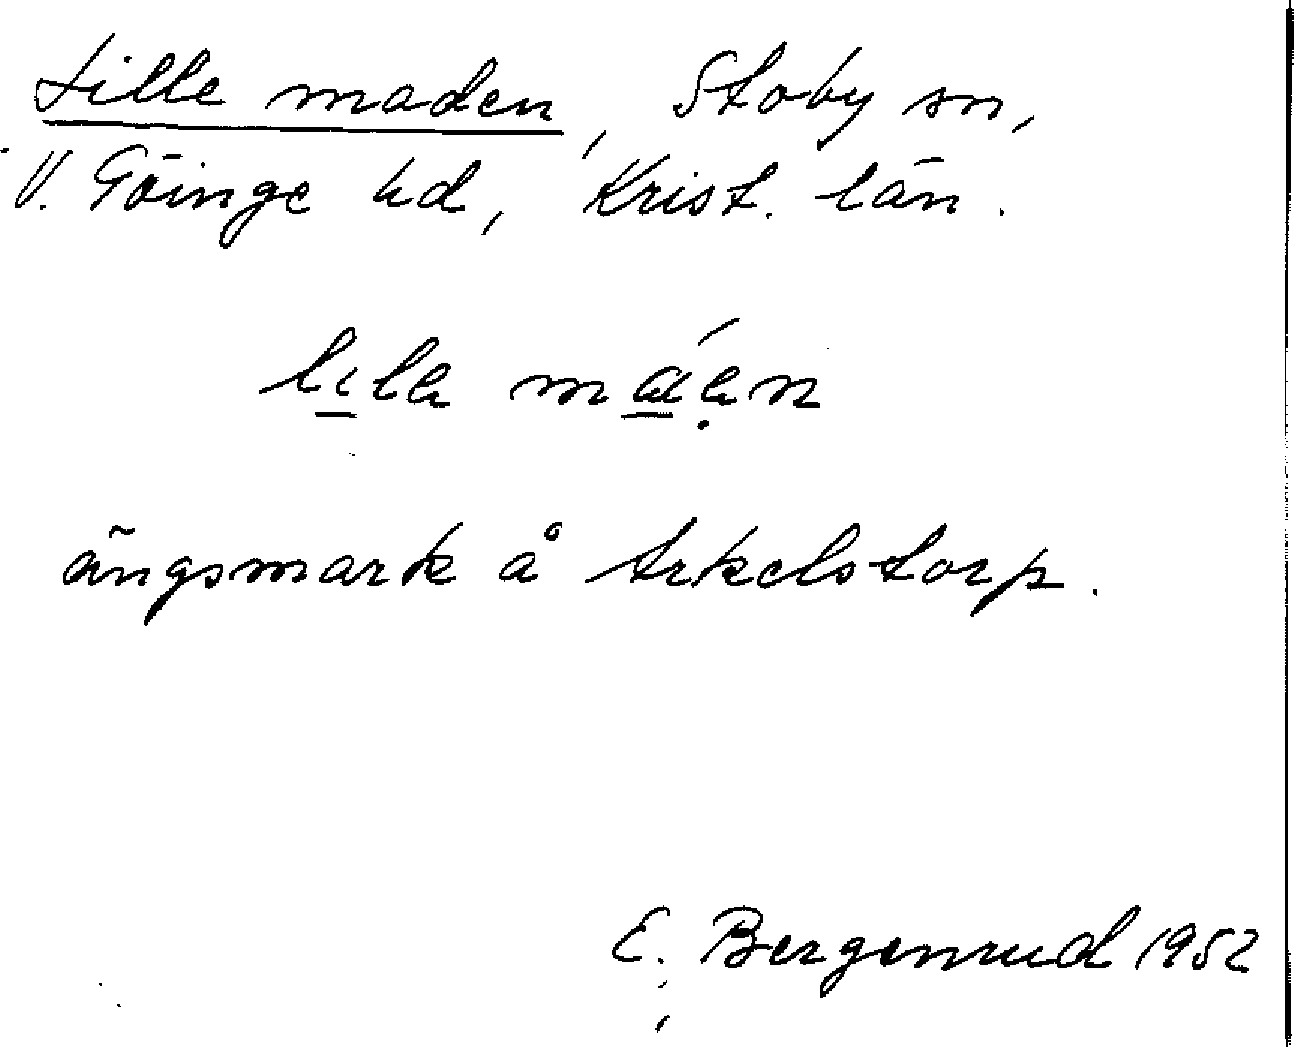 Lille maden, Stoby sn,
V. Göinge hd, Krist. län.
lila máen
ängsmark å Arkelstorp.
E. Bergenrud 1952